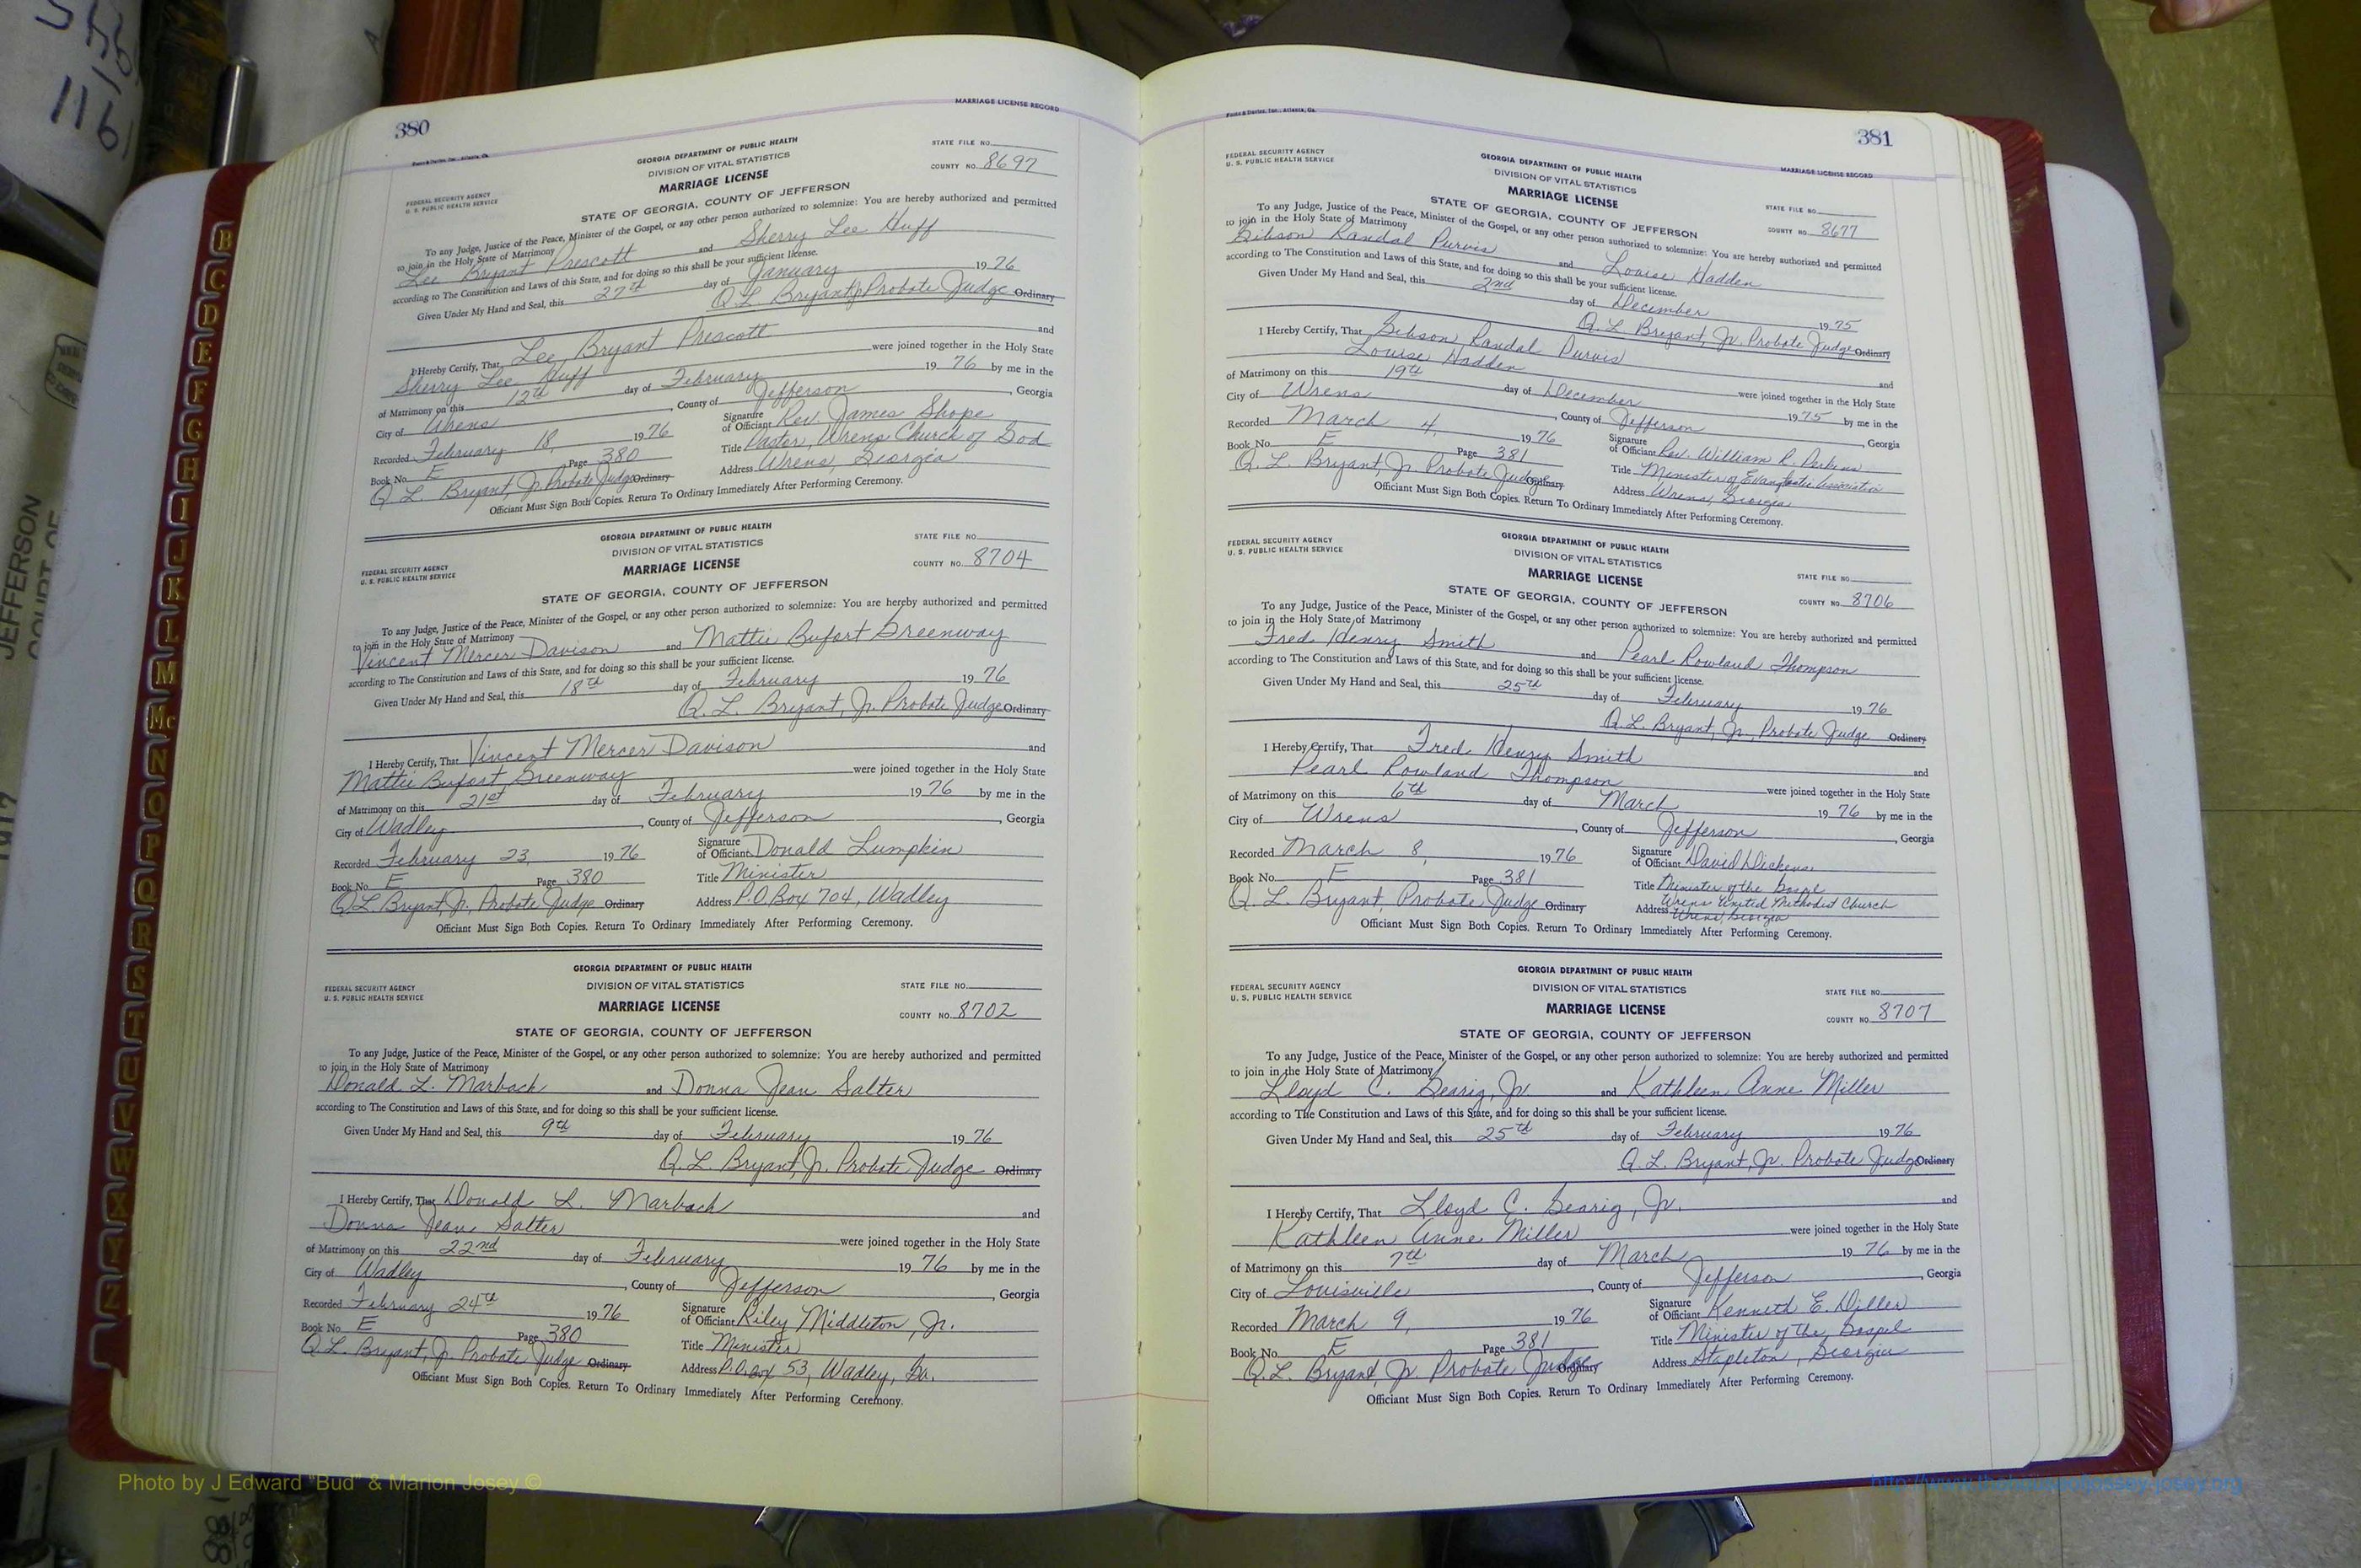 380
MARRIAGE LICENSE RECORD
GEORGIA DEPARTMENT OF PUBLIC HEALTH
DIVISION OF VITAL STATISTICS
MARRIAGE LICENSE
STATE OF GEORGIA, COUNTY OF JEFFERSON
FEDERAL SECURITY AGENCY
U. S. PUBLIC HEALTH SERVICE
STATE FILE NO.
COUNTY NO. 8697
To any Judge, Justice of the Peace, Minister of the Gospel, or any other person authorized to solemnize: You are hereby authorized and permitted
to join in the Holy State of Matrimony
Lee Bryant Prescott and Sherry Lee Huff
according to The Constitution and Laws of this State, and for doing so this shall be your sufficient license.
Given Under My Hand and Seal, this 27th day of January 1976
Q. L. Bryant, Jr. Probate Judge Ordinary
I Hereby Certify, That Lee Bryant Prescott and
Sherry Lee Huff were joined together in the Holy State
of Matrimony on this 12th day of February 1976 by me in the
City of Wrens, County of Jefferson, Georgia
Recorded February 18, 1976
Signature of Officiant Rev. James Shope
Book No. E Page 380
Title Pastor, Wrens Church of God
Q. L. Bryant, Jr. Probate Judge Ordinary
Address Wrens, Georgia
Officiant Must Sign Both Copies. Return To Ordinary Immediately After Performing Ceremony.
GEORGIA DEPARTMENT OF PUBLIC HEALTH
DIVISION OF VITAL STATISTICS
MARRIAGE LICENSE
STATE OF GEORGIA, COUNTY OF JEFFERSON
FEDERAL SECURITY AGENCY
U. S. PUBLIC HEALTH SERVICE
STATE FILE NO.
COUNTY NO. 8704
To any Judge, Justice of the Peace, Minister of the Gospel, or any other person authorized to solemnize: You are hereby authorized and permitted
to join in the Holy State of Matrimony
Vincent Mercer Davison and Mattie Bufort Greenway
according to The Constitution and Laws of this State, and for doing so this shall be your sufficient license.
Given Under My Hand and Seal, this 18th day of February 1976
Q. L. Bryant, Jr. Probate Judge Ordinary
I Hereby Certify, That Vincent Mercer Davison and
Mattie Bufort Greenway were joined together in the Holy State
of Matrimony on this 21st day of February 1976 by me in the
City of Wadley, County of Jefferson, Georgia
Recorded February 23, 1976
Signature of Officiant Donald Lumpkin
Book No. E Page 380
Title Minister
Q. L. Bryant, Jr., Probate Judge Ordinary
Address P.O. Box 704, Wadley
Officiant Must Sign Both Copies. Return To Ordinary Immediately After Performing Ceremony.
GEORGIA DEPARTMENT OF PUBLIC HEALTH
DIVISION OF VITAL STATISTICS
MARRIAGE LICENSE
STATE OF GEORGIA, COUNTY OF JEFFERSON
FEDERAL SECURITY AGENCY
U. S. PUBLIC HEALTH SERVICE
STATE FILE NO.
COUNTY NO. 8702
To any Judge, Justice of the Peace, Minister of the Gospel, or any other person authorized to solemnize: You are hereby authorized and permitted
to join in the Holy State of Matrimony
Donald L. Marbach and Donna Jean Salter
according to The Constitution and Laws of this State, and for doing so this shall be your sufficient license.
Given Under My Hand and Seal, this 9th day of February 1976
Q. L. Bryant, Jr. Probate Judge Ordinary
I Hereby Certify, That Donald L. Marbach and
Donna Jean Salter were joined together in the Holy State
of Matrimony on this 22nd day of February 1976 by me in the
City of Wadley, County of Jefferson, Georgia
Recorded February 24th 1976
Signature of Officiant Riley Middleton, Jr.
Book No. E Page 380
Title Minister
Q. L. Bryant, Jr. Probate Judge Ordinary
Address P.O. Box 53, Wadley, Ga.
Officiant Must Sign Both Copies. Return To Ordinary Immediately After Performing Ceremony.
381
MARRIAGE LICENSE RECORD
FEDERAL SECURITY AGENCY
U. S. PUBLIC HEALTH SERVICE
GEORGIA DEPARTMENT OF PUBLIC HEALTH
DIVISION OF VITAL STATISTICS
MARRIAGE LICENSE
STATE OF GEORGIA, COUNTY OF JEFFERSON
STATE FILE NO.
COUNTY NO. 8677
To any Judge, Justice of the Peace, Minister of the Gospel, or any other person authorized to solemnize: You are hereby authorized and permitted
to join in the Holy State of Matrimony
Gibson Randal Purvis and Louise Hadden
according to The Constitution and Laws of this State, and for doing so this shall be your sufficient license.
Given Under My Hand and Seal, this 2nd day of December 1975
Q. L. Bryant, Jr. Probate Judge Ordinary
I Hereby Certify, That Gibson Randal Purvis and
Louise Hadden were joined together in the Holy State
of Matrimony on this 19th day of December 1975 by me in the
City of Wrens, County of Jefferson, Georgia
Recorded March 4, 1976
Signature of Officiant Rev. William R. Perkins
Book No. E Page 381
Title Minister of Evangelistic Association
Q. L. Bryant, Jr. Probate Judge Ordinary
Address Wrens, Georgia
Officiant Must Sign Both Copies. Return To Ordinary Immediately After Performing Ceremony.
FEDERAL SECURITY AGENCY
U. S. PUBLIC HEALTH SERVICE
GEORGIA DEPARTMENT OF PUBLIC HEALTH
DIVISION OF VITAL STATISTICS
MARRIAGE LICENSE
STATE OF GEORGIA, COUNTY OF JEFFERSON
STATE FILE NO.
COUNTY NO. 8706
To any Judge, Justice of the Peace, Minister of the Gospel, or any other person authorized to solemnize: You are hereby authorized and permitted
to join in the Holy State of Matrimony
Fred Henry Smith and Pearl Rowland Thompson
according to The Constitution and Laws of this State, and for doing so this shall be your sufficient license.
Given Under My Hand and Seal, this 25th day of February 1976
Q. L. Bryant, Jr., Probate Judge Ordinary
I Hereby Certify, That Fred Henry Smith and
Pearl Rowland Thompson were joined together in the Holy State
of Matrimony on this 6th day of March 1976 by me in the
City of Wrens, County of Jefferson, Georgia
Recorded March 8, 1976
Signature of Officiant David Dickens
Book No. E Page 381
Title Minister of the Gospel
Q. L. Bryant, Probate Judge Ordinary
Wrens United Methodist Church
Address Wrens, Georgia
Officiant Must Sign Both Copies. Return To Ordinary Immediately After Performing Ceremony.
FEDERAL SECURITY AGENCY
U. S. PUBLIC HEALTH SERVICE
GEORGIA DEPARTMENT OF PUBLIC HEALTH
DIVISION OF VITAL STATISTICS
MARRIAGE LICENSE
STATE OF GEORGIA, COUNTY OF JEFFERSON
STATE FILE NO.
COUNTY NO. 8707
To any Judge, Justice of the Peace, Minister of the Gospel, or any other person authorized to solemnize: You are hereby authorized and permitted
to join in the Holy State of Matrimony
Lloyd C. Gearig, Jr. and Kathleen Anne Miller
according to The Constitution and Laws of this State, and for doing so this shall be your sufficient license.
Given Under My Hand and Seal, this 25th day of February 1976
Q. L. Bryant, Jr. Probate Judge Ordinary
I Hereby Certify, That Lloyd C. Gearig, Jr. and
Kathleen Anne Miller were joined together in the Holy State
of Matrimony on this 7th day of March 1976 by me in the
City of Louisville, County of Jefferson, Georgia
Recorded March 9, 1976
Signature of Officiant Kenneth E.
Book No. E Page 381
Title Minister of the Gospel
Q. L. Bryant, Jr. Probate Judge Ordinary
Address Stapleton, Georgia
Officiant Must Sign Both Copies. Return To Ordinary Immediately After Performing Ceremony.
B
C
D
E
F
G
H
I
J
K
L
M
Mc
N
O
P
Q
R
S
T
U
V
W
X
Y
Z
JEFFERSON
Photo by J Edward "Bud" & Marion Josey ©